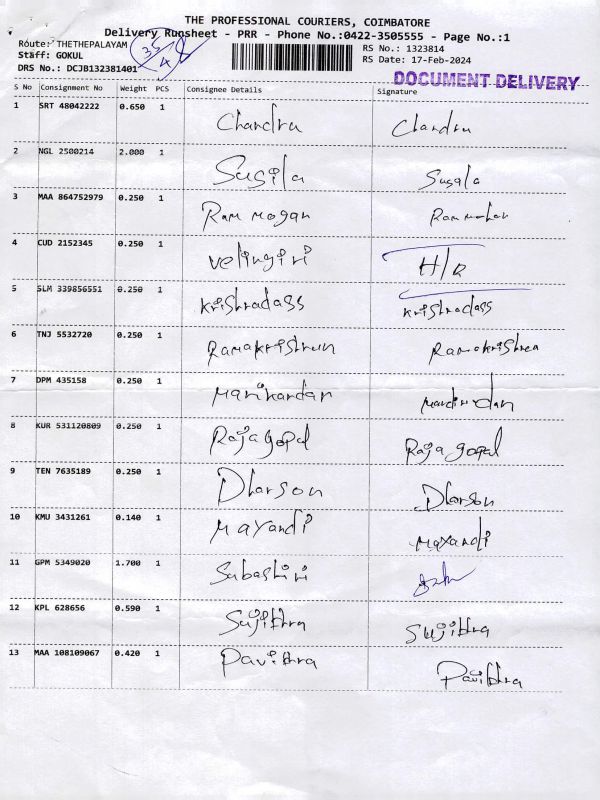 THE PROFESSIONAL COURIERS, COIMBATORE
Delivery Runsheet - PRR - Phone No.:0422-3505555 - Page No.:1
Route: THETHEPALAYAM RS No.: 1323814
Staff: GOKUL RS Date: 17-Feb-2024
DRS No.: DCJB132381401
35/48
DOCUMENT DELIVERY
S No Consignment No Weight PCS Consignee Details Signature
1 SRT 48042222 0.650 1 Chandru Chandru
2 NGL 2500214 2.000 1 Sugila Sugala
3 MAA 864752979 0.250 1 Ram mogan Ram mohan
4 CUD 2152345 0.250 1 velingiri H/R
5 SLM 339856551 0.250 1 Krishradass Krishradass
6 TNJ 5532720 0.250 1 Ramakrishrun Ramakrishrea
7 DPM 435158 0.250 1 Manikandan
8 KUR 531120809 0.250 1 Rajagopal Raja gopal
9 TEN 7635189 0.250 1 Dharson Dharson
10 KMU 3431261 0.140 1 Mayandi Mayandi
11 GPM 5349020 1.700 1 Subashiri
12 KPL 628656 0.590 1 Sujithra Sujithra
13 MAA 108109067 0.420 1 Pavithra Pavithra